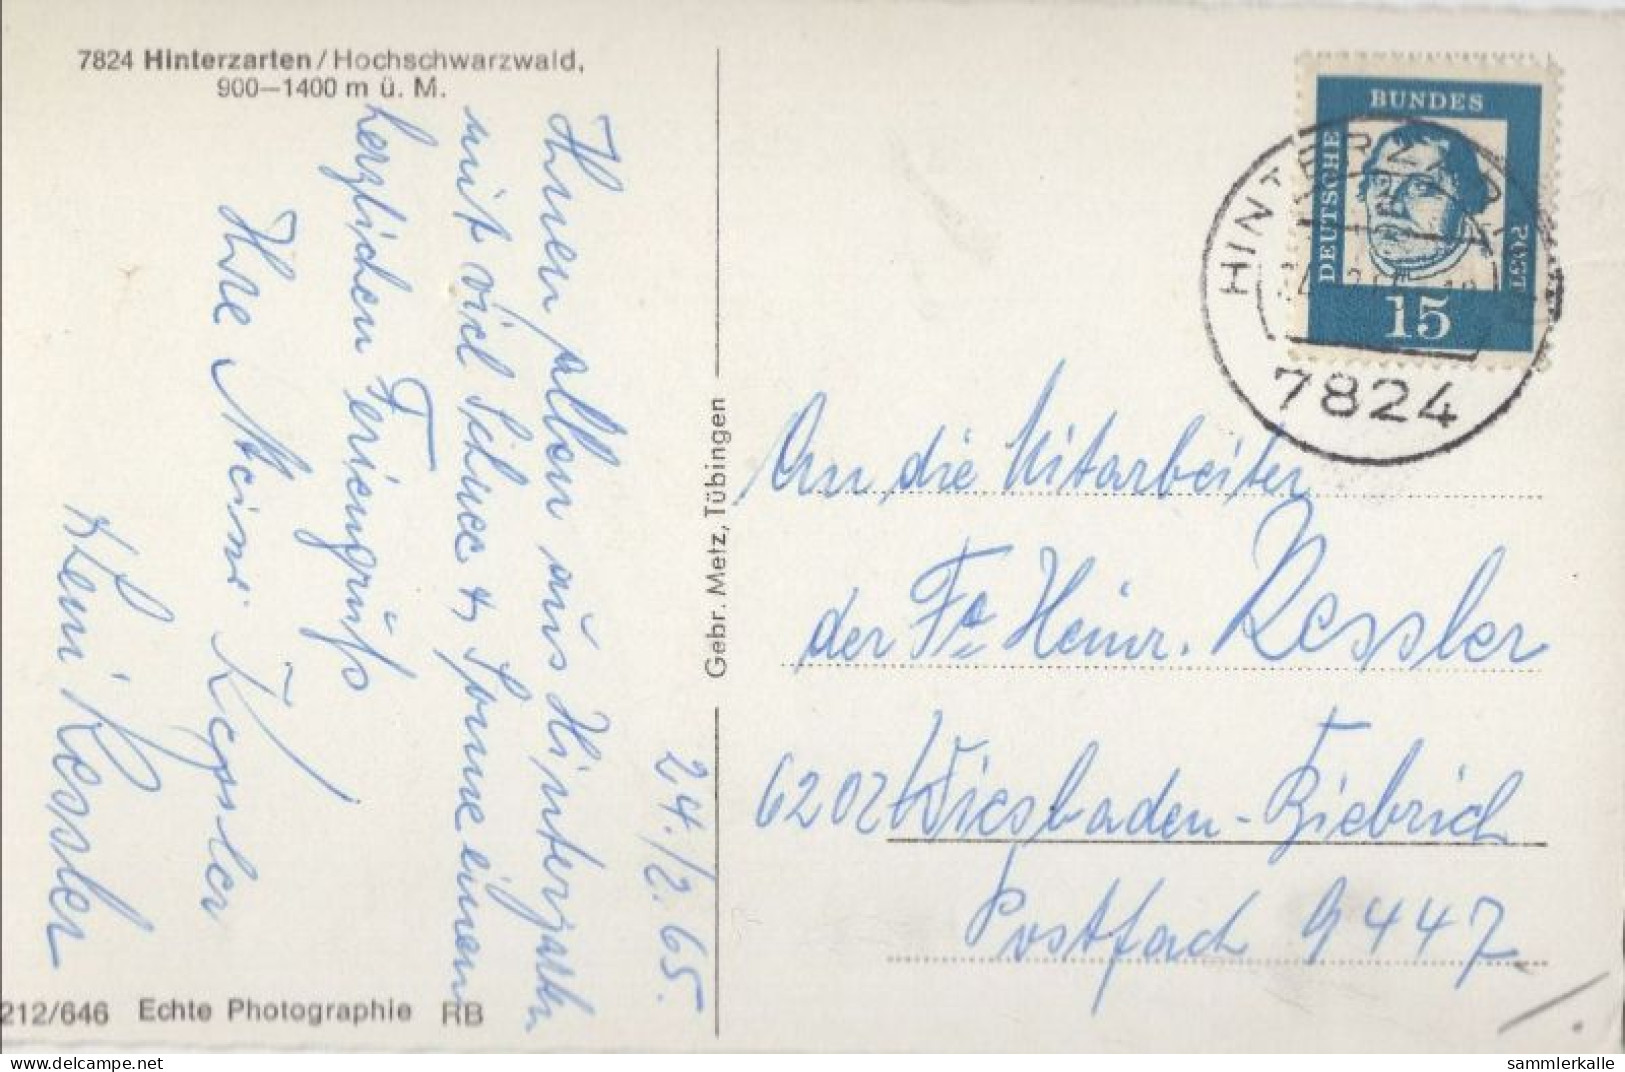 7824 Hinterzarten/Hochschwarzwald,
900—1400 m ü. M.
24./2.65.
Ihnen allen aus Hinterzarten
mit viel Schnee & Sonne einen
herzlichen Feriengruß
Ihre Heinr. Kessler
& Leni Kessler
212/646 Echte Photographie RB
Gebr. Metz, Tübingen
DEUTSCHE BUNDES POST
15
HINTERZARTEN
7824
An die Mitarbeiter
der Fa Heinr. Kessler
6202 Wiesbaden-Biebrich
Postfach 9447
delcampe.net
sammlerkalle